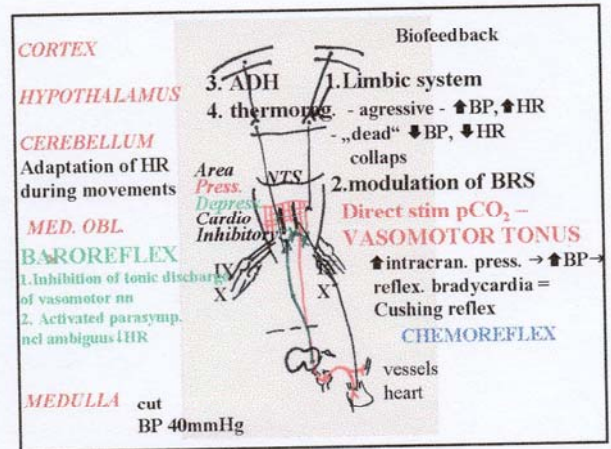 CORTEX
HYPOTHALAMUS
CEREBELLUM
Adaptation of HR
during movements
MED. OBL.
BAROREFLEX
1.Inhibition of tonic discharge
of vasomotor nn
2. Activated parasymp.
ncl ambiguus↓HR
MEDULLA
cut
BP 40mmHg
3. ADH
4. thermoreg.
Area
Press.
Depress.
Cardio
Inhibitory
NTS
IX
X
IX
X
Biofeedback
1.Limbic system
- agressive - ⬆BP,⬆HR
- „dead“ ⬇BP, ⬇HR
collaps
2.modulation of BRS
Direct stim pCO₂ –
VASOMOTOR TONUS
⬆intracran. press. → ⬆BP→
reflex. bradycardia =
Cushing reflex
CHEMOREFLEX
vessels
heart